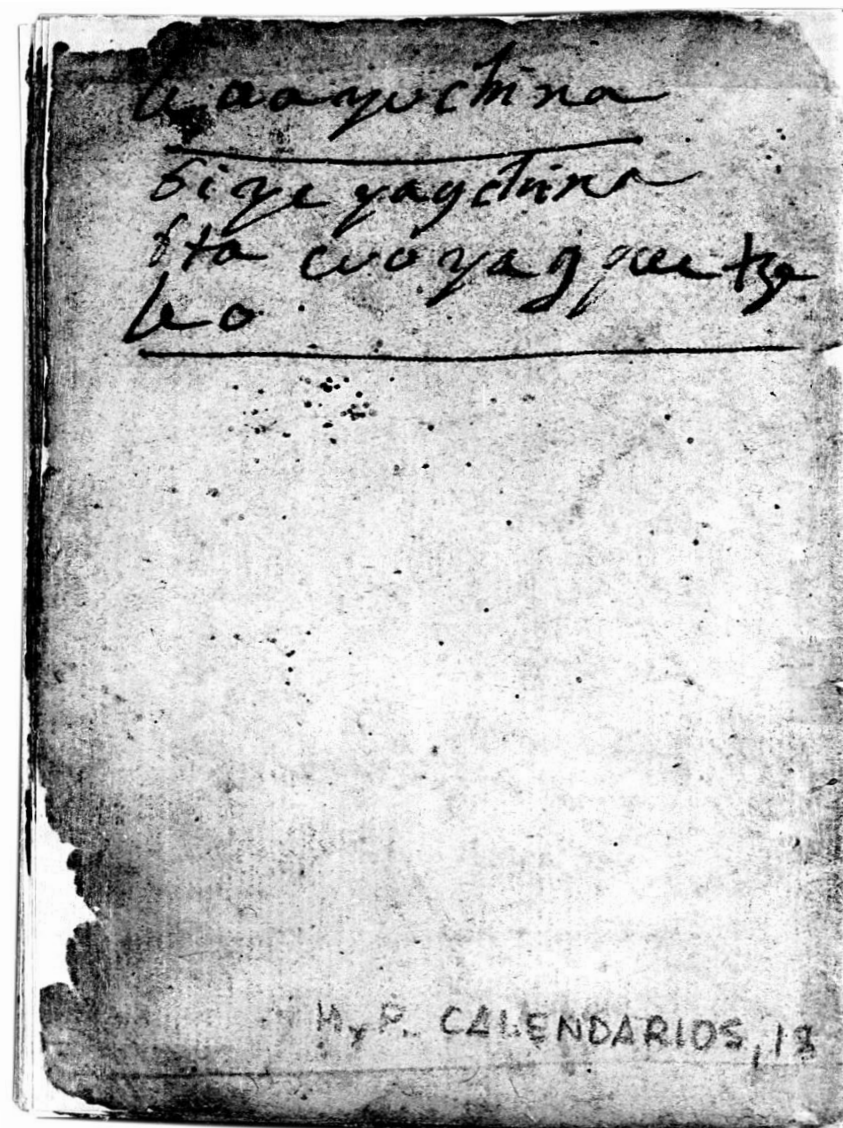 le aayuchina
bi ye yagchina
bta cuo yag queetze
leo
M y P. CALENDARIOS, 18